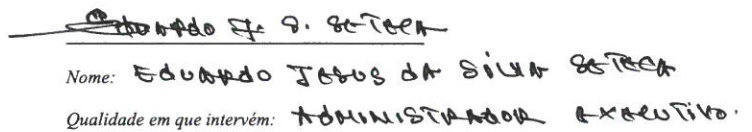 Eduardo J. S. Seteca
Nome: Eduardo Jesus da Silva Seteca
Qualidade em que intervém: Administrador Executivo.